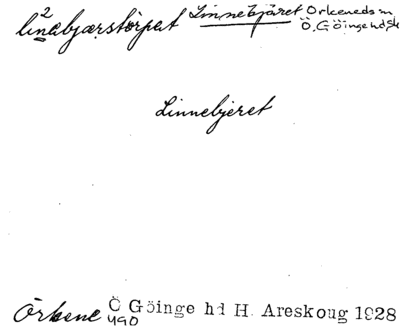 li²nabjærstörpet Linnebjäret Örkeneds sn
Ö. Göinge hd, Sk
Linnebjeret
Örkene Ö Göinge hd H. Areskoug 1928
490